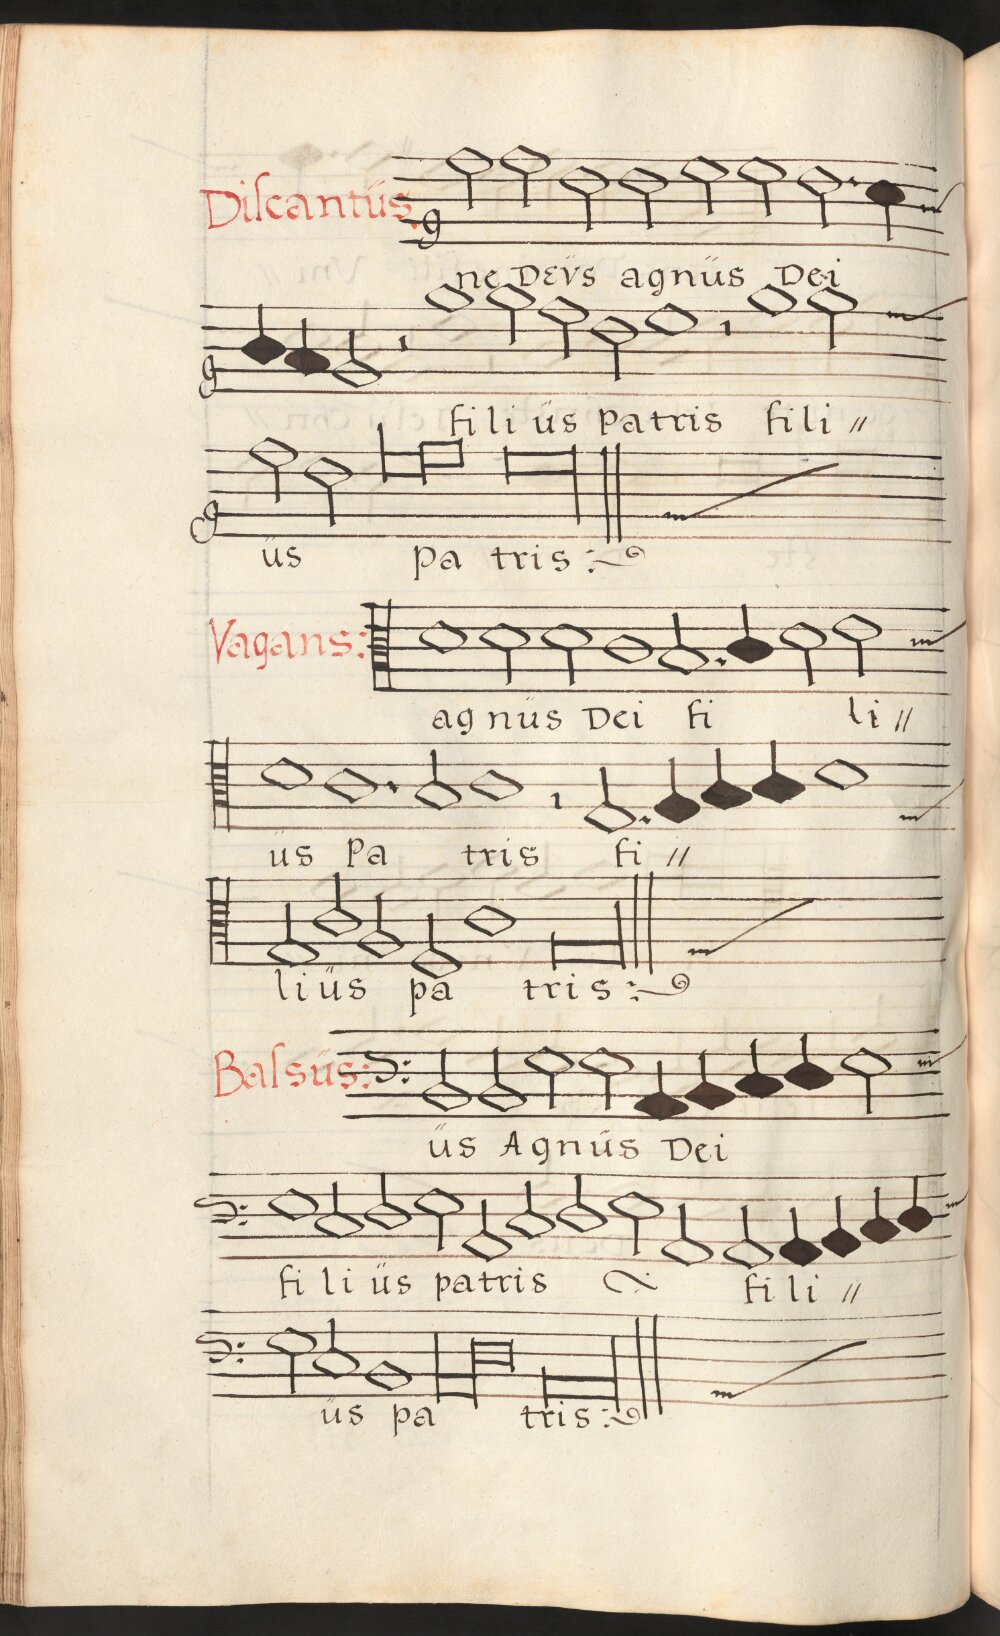 Discantüs.
ne DEVS agnüs Dei
fi li üs patris fili //
üs pa tris :~
Vagans:
agnüs Dei fi li //
üs Pa tris fi //
li üs pa tris :~
Bassüs:
üs Agnüs Dei
fi li üs patris ~ fi li //
üs pa tris :~